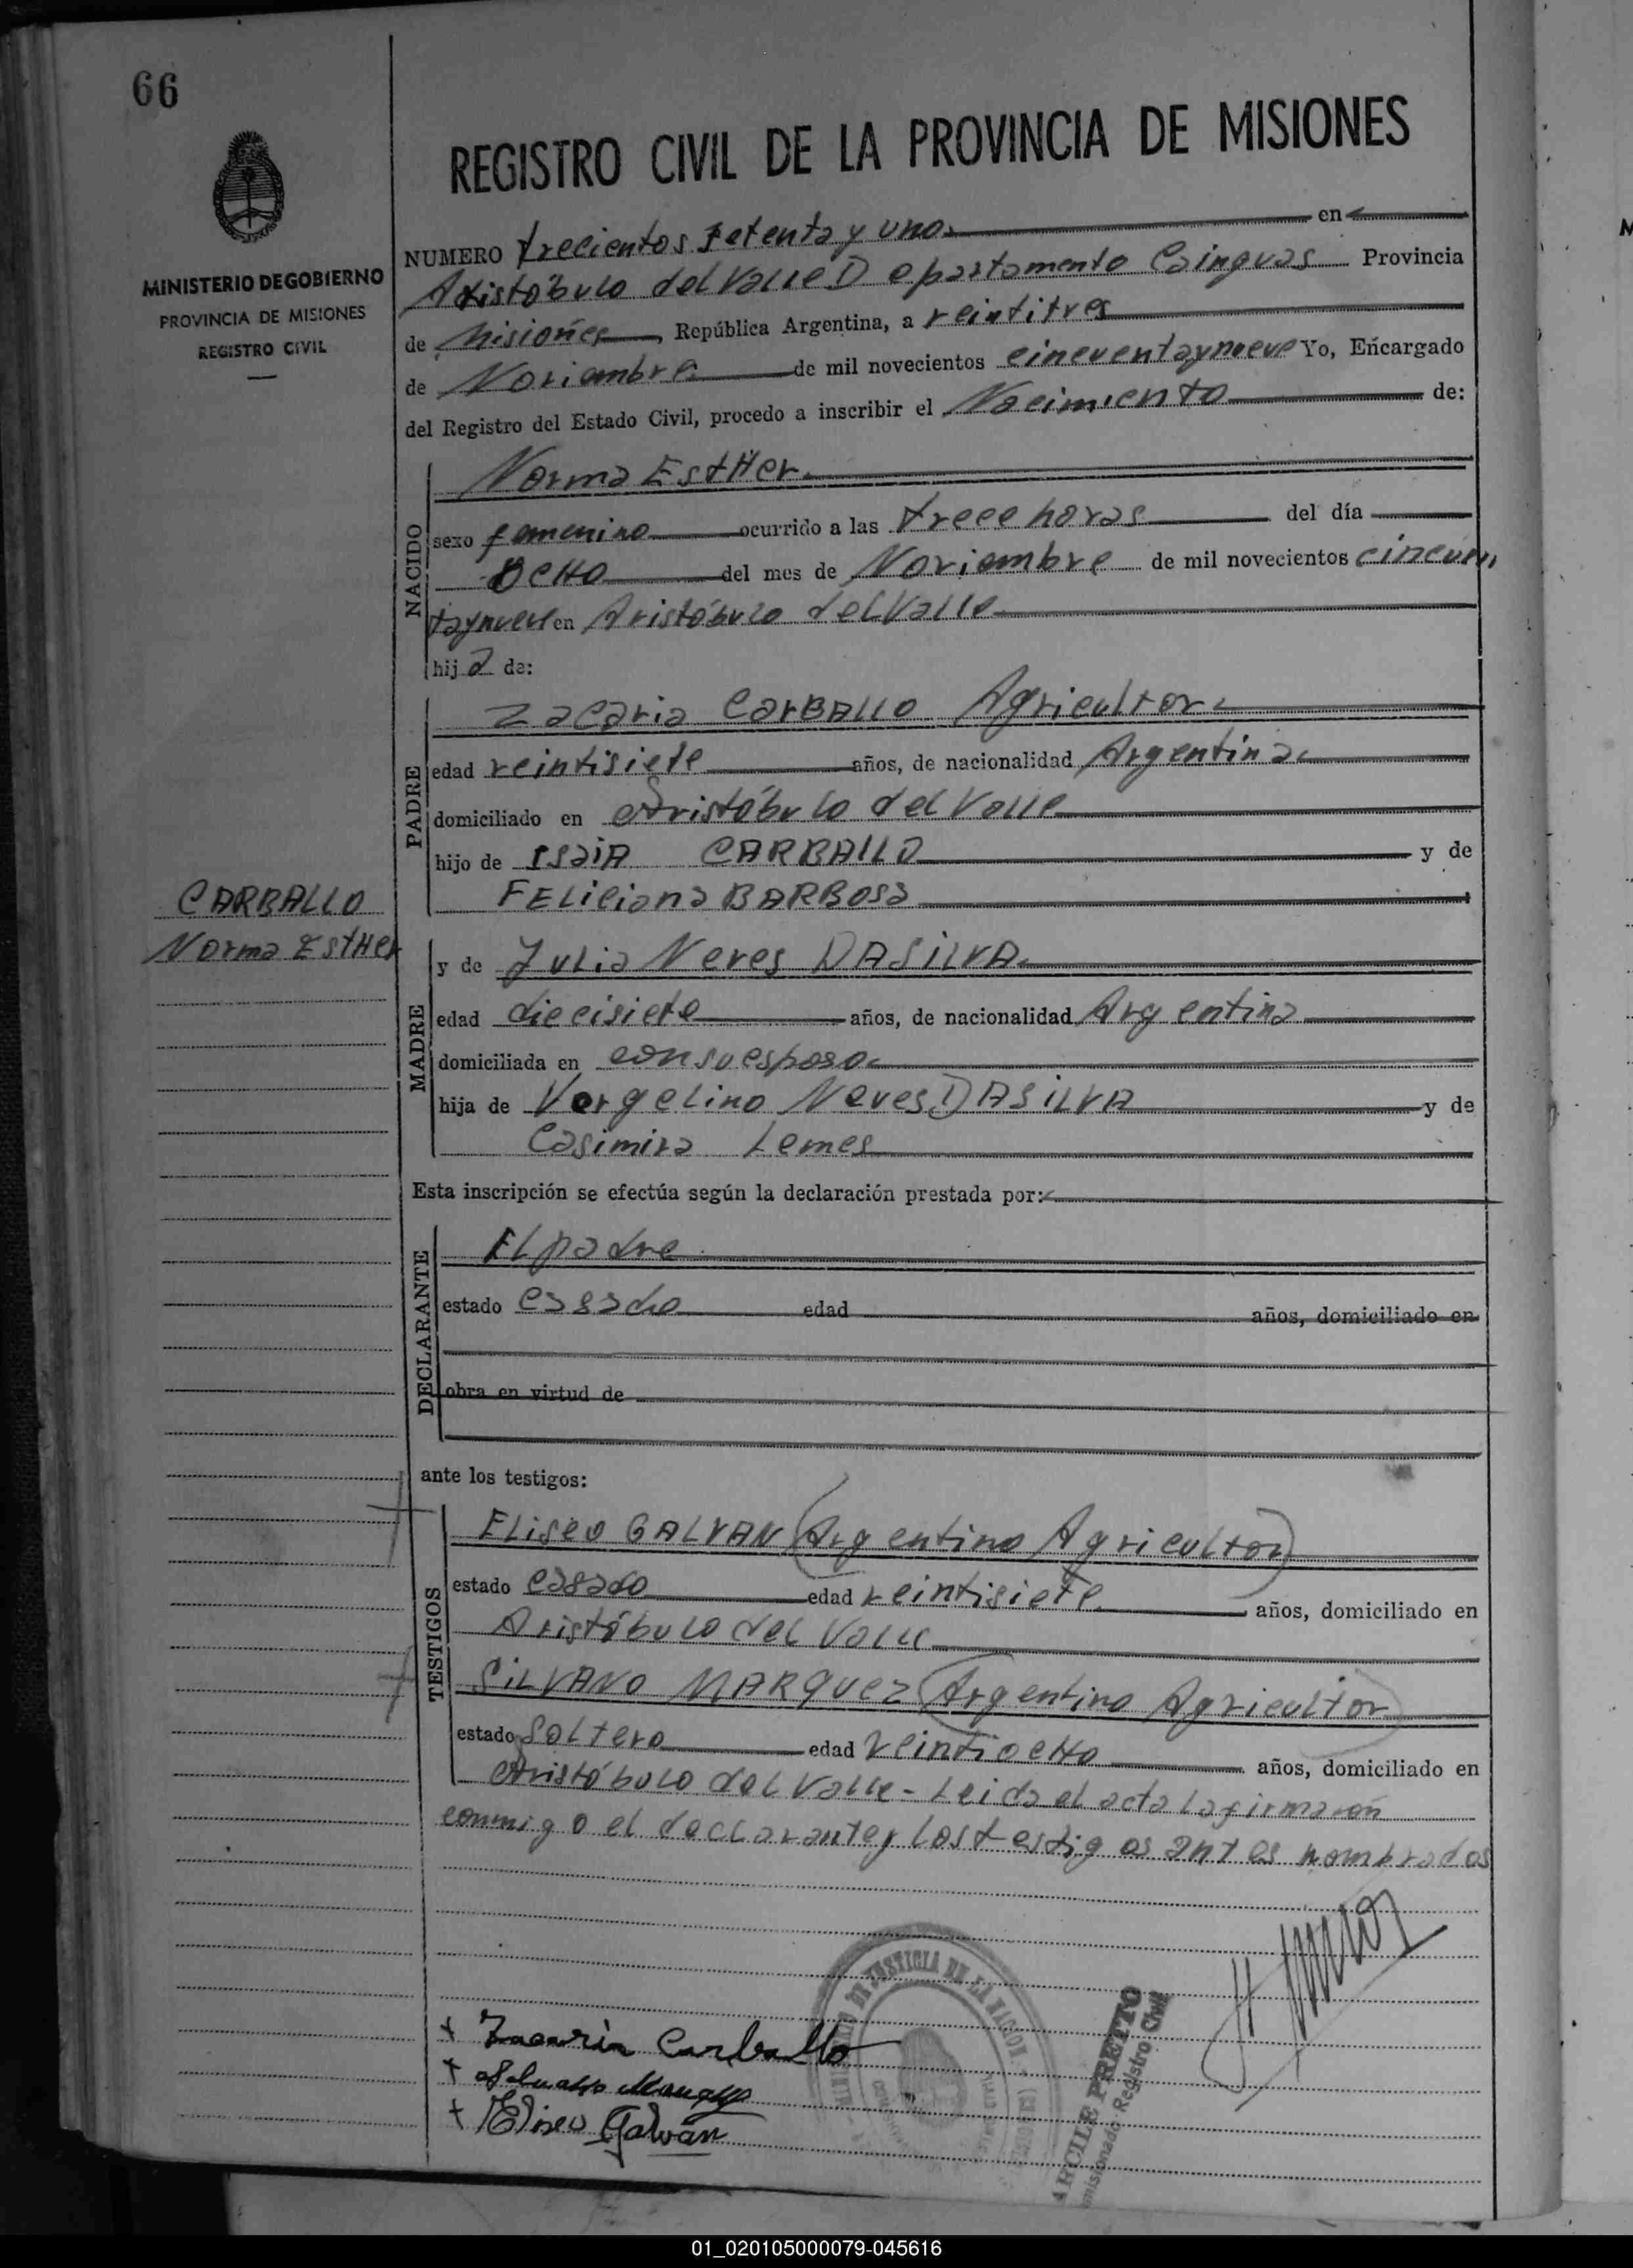 66
REGISTRO CIVIL DE LA PROVINCIA DE MISIONES
MINISTERIO DE GOBIERNO
PROVINCIA DE MISIONES
REGISTRO CIVIL
NUMERO trecientos setenta y uno en
Aristóbulo del Valle Departamento Cainguas Provincia
de Misiones, República Argentina, a veintitres
de Noviembre de mil novecientos cincuentaynueve Yo, Encargado
del Registro del Estado Civil, procedo a inscribir el Nacimiento de:
NACIDO
Norma EstHer
sexo femenino ocurrido a las trece horas del día
ocHo del mes de Noviembre de mil novecientos cincuen
taynueve en Aristóbulo del Valle
hija de:
PADRE
Zacaria CarBALLO Agricultor
edad veintisiete años, de nacionalidad Argentina
domiciliado en Aristóbulo del Valle
hijo de ISaiA CARBALLO y de
FELiciana BARBOSa
CARBALLO
Norma EstHer
MADRE
y de Julia Neves DASILVA
edad diecisiete años, de nacionalidad Argentina
domiciliada en consuesposo
hija de Vergelino Neves DASILVA y de
Casimira Lemes
Esta inscripción se efectúa según la declaración prestada por:
DECLARANTE
El padre
estado casado edad años, domiciliado en
obra en virtud de
ante los testigos:
TESTIGOS
ELiseo GALVAN (Argentino Agricultor)
estado casado edad veintisiete años, domiciliado en
Aristóbulo del Valle
SILVANO MARQUEZ (Argentino Agricultor)
estado soltero edad veintiocHo años, domiciliado en
Aristóbulo del Valle - Leida el acta la firmaron
conmigo el declarante y los testigos antes nombrados
MINISTERIO DE JUSTICIA DE LA NACION
+ Zacaria Carballo
+ Eliseo Galván
ARCILE PRETTO
misionado Registro Civil
01_020105000079-045616